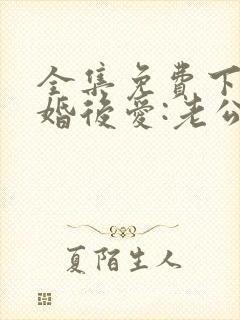 全集免費下
婚後愛:老公
夏陌生人